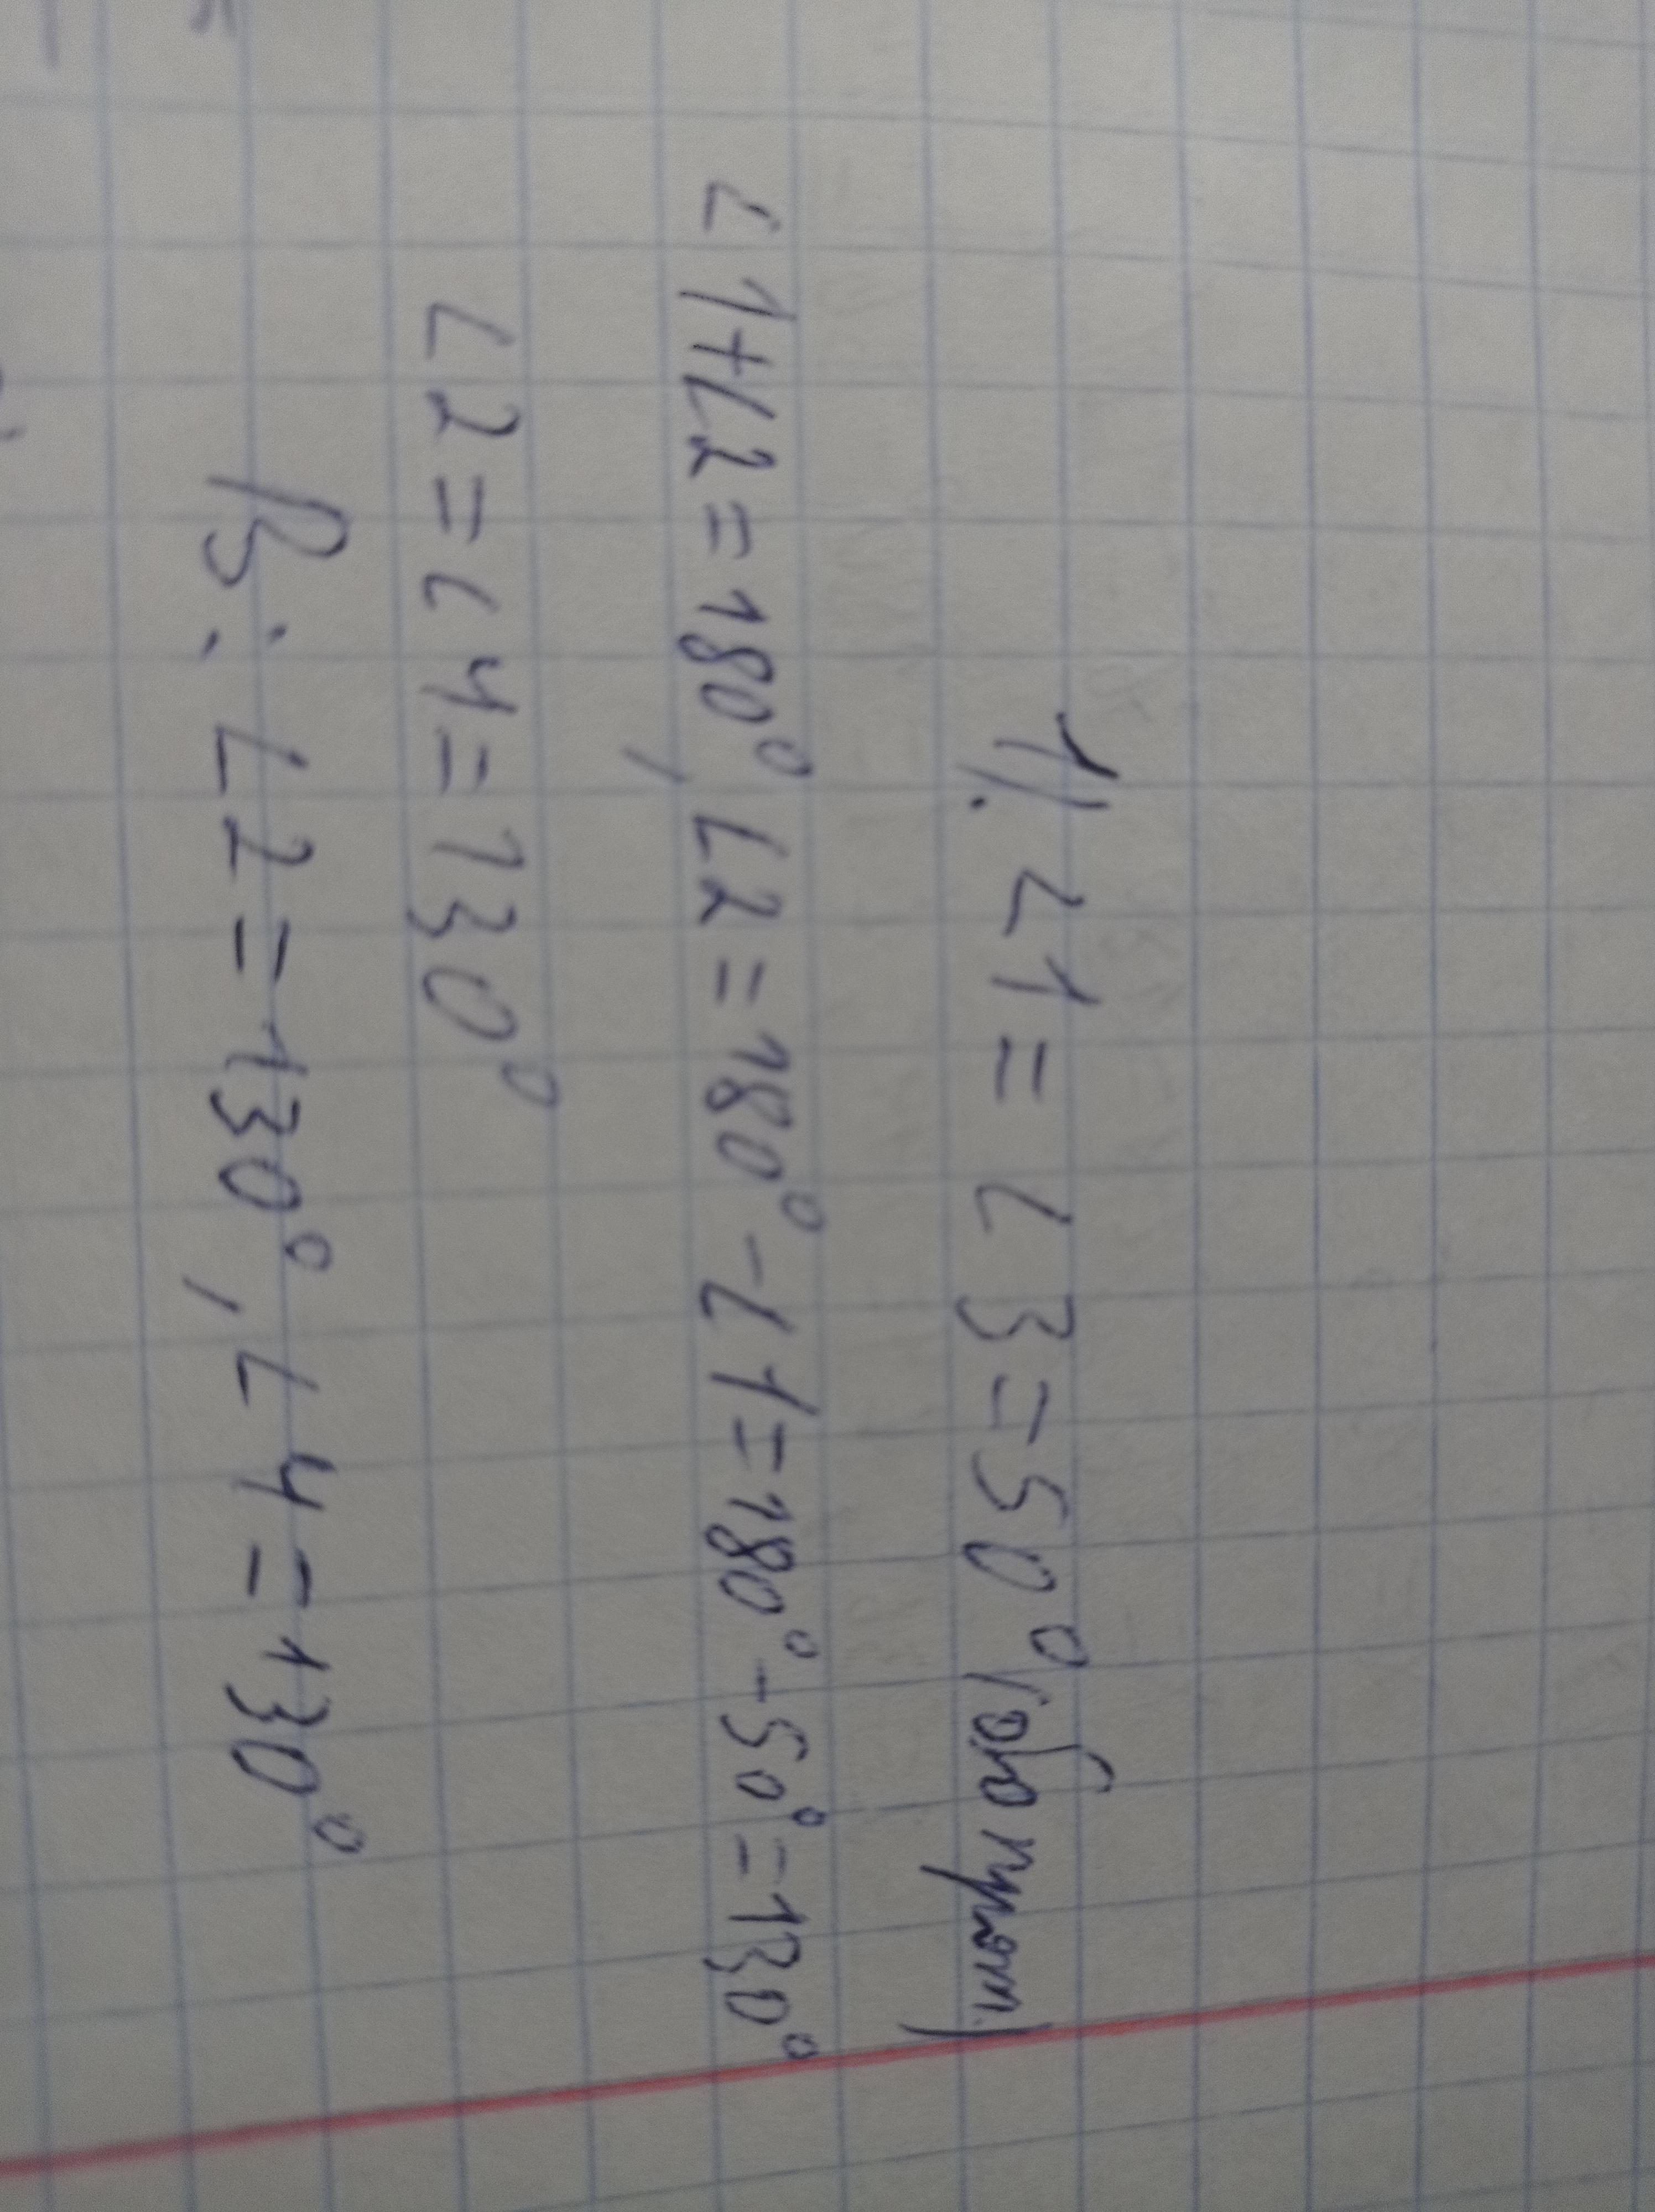 1). ∠1 = ∠3 = 50°
∠1+∠2 = 180°, ∠2 = 180° - ∠1 = 180° - 50° = 130°
∠2 = ∠4 = 130°
В: ∠2 = 130°, ∠4 = 130°